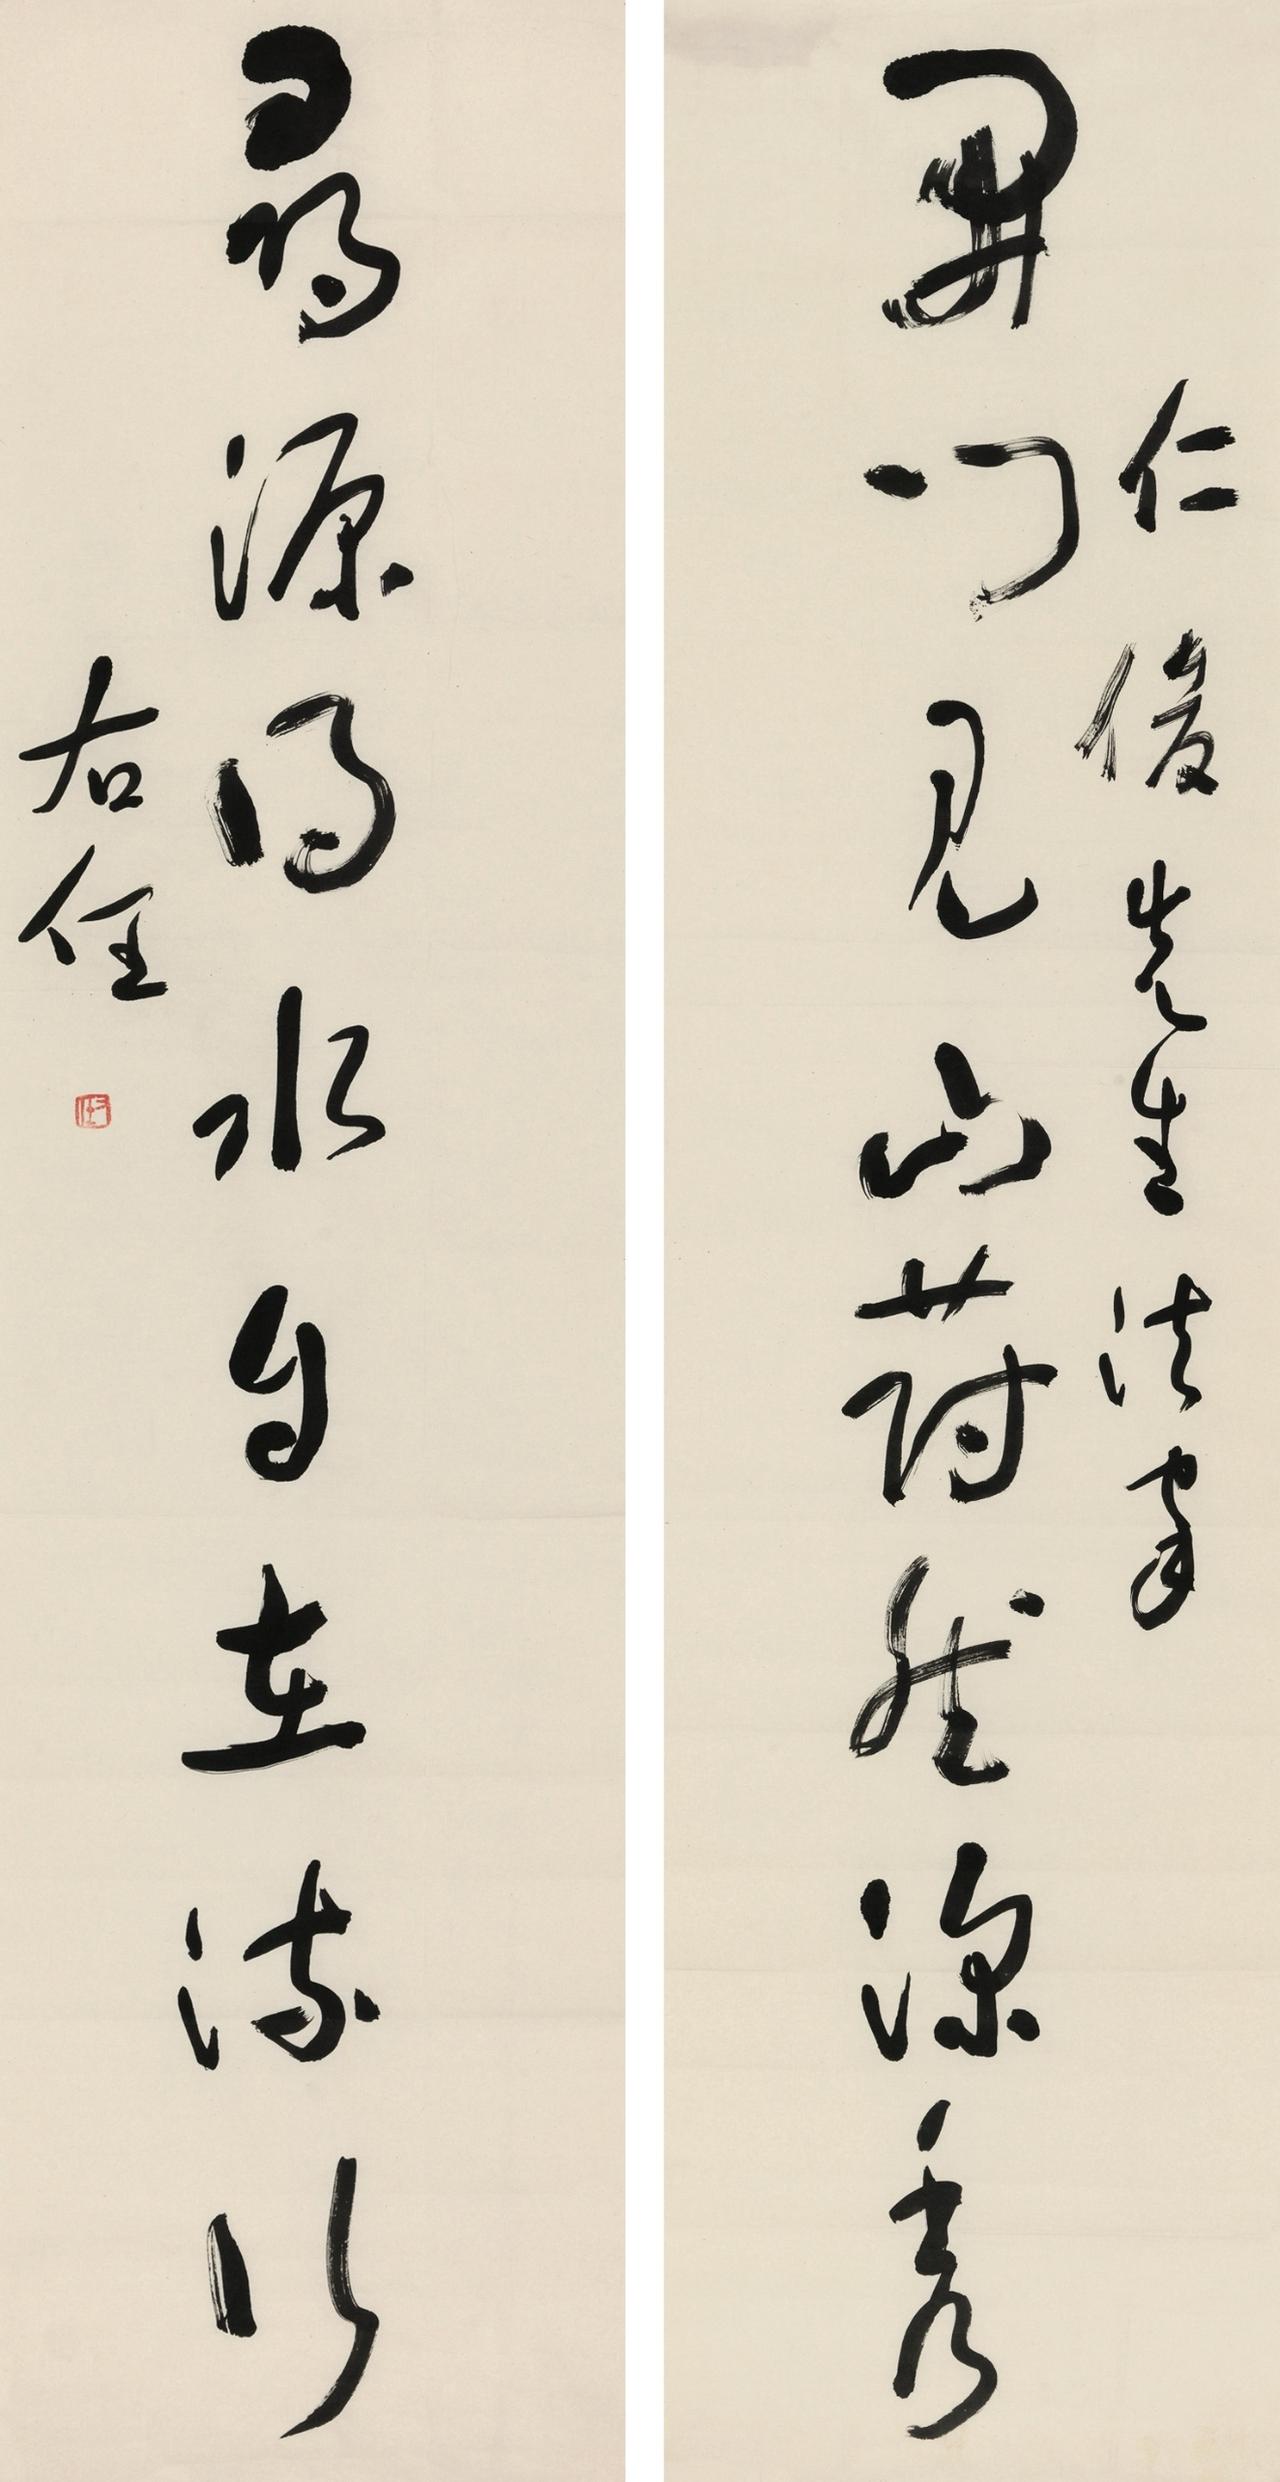 仁俊先生法家
開門見山蔚然深秀
尋源得水自在流行
右任